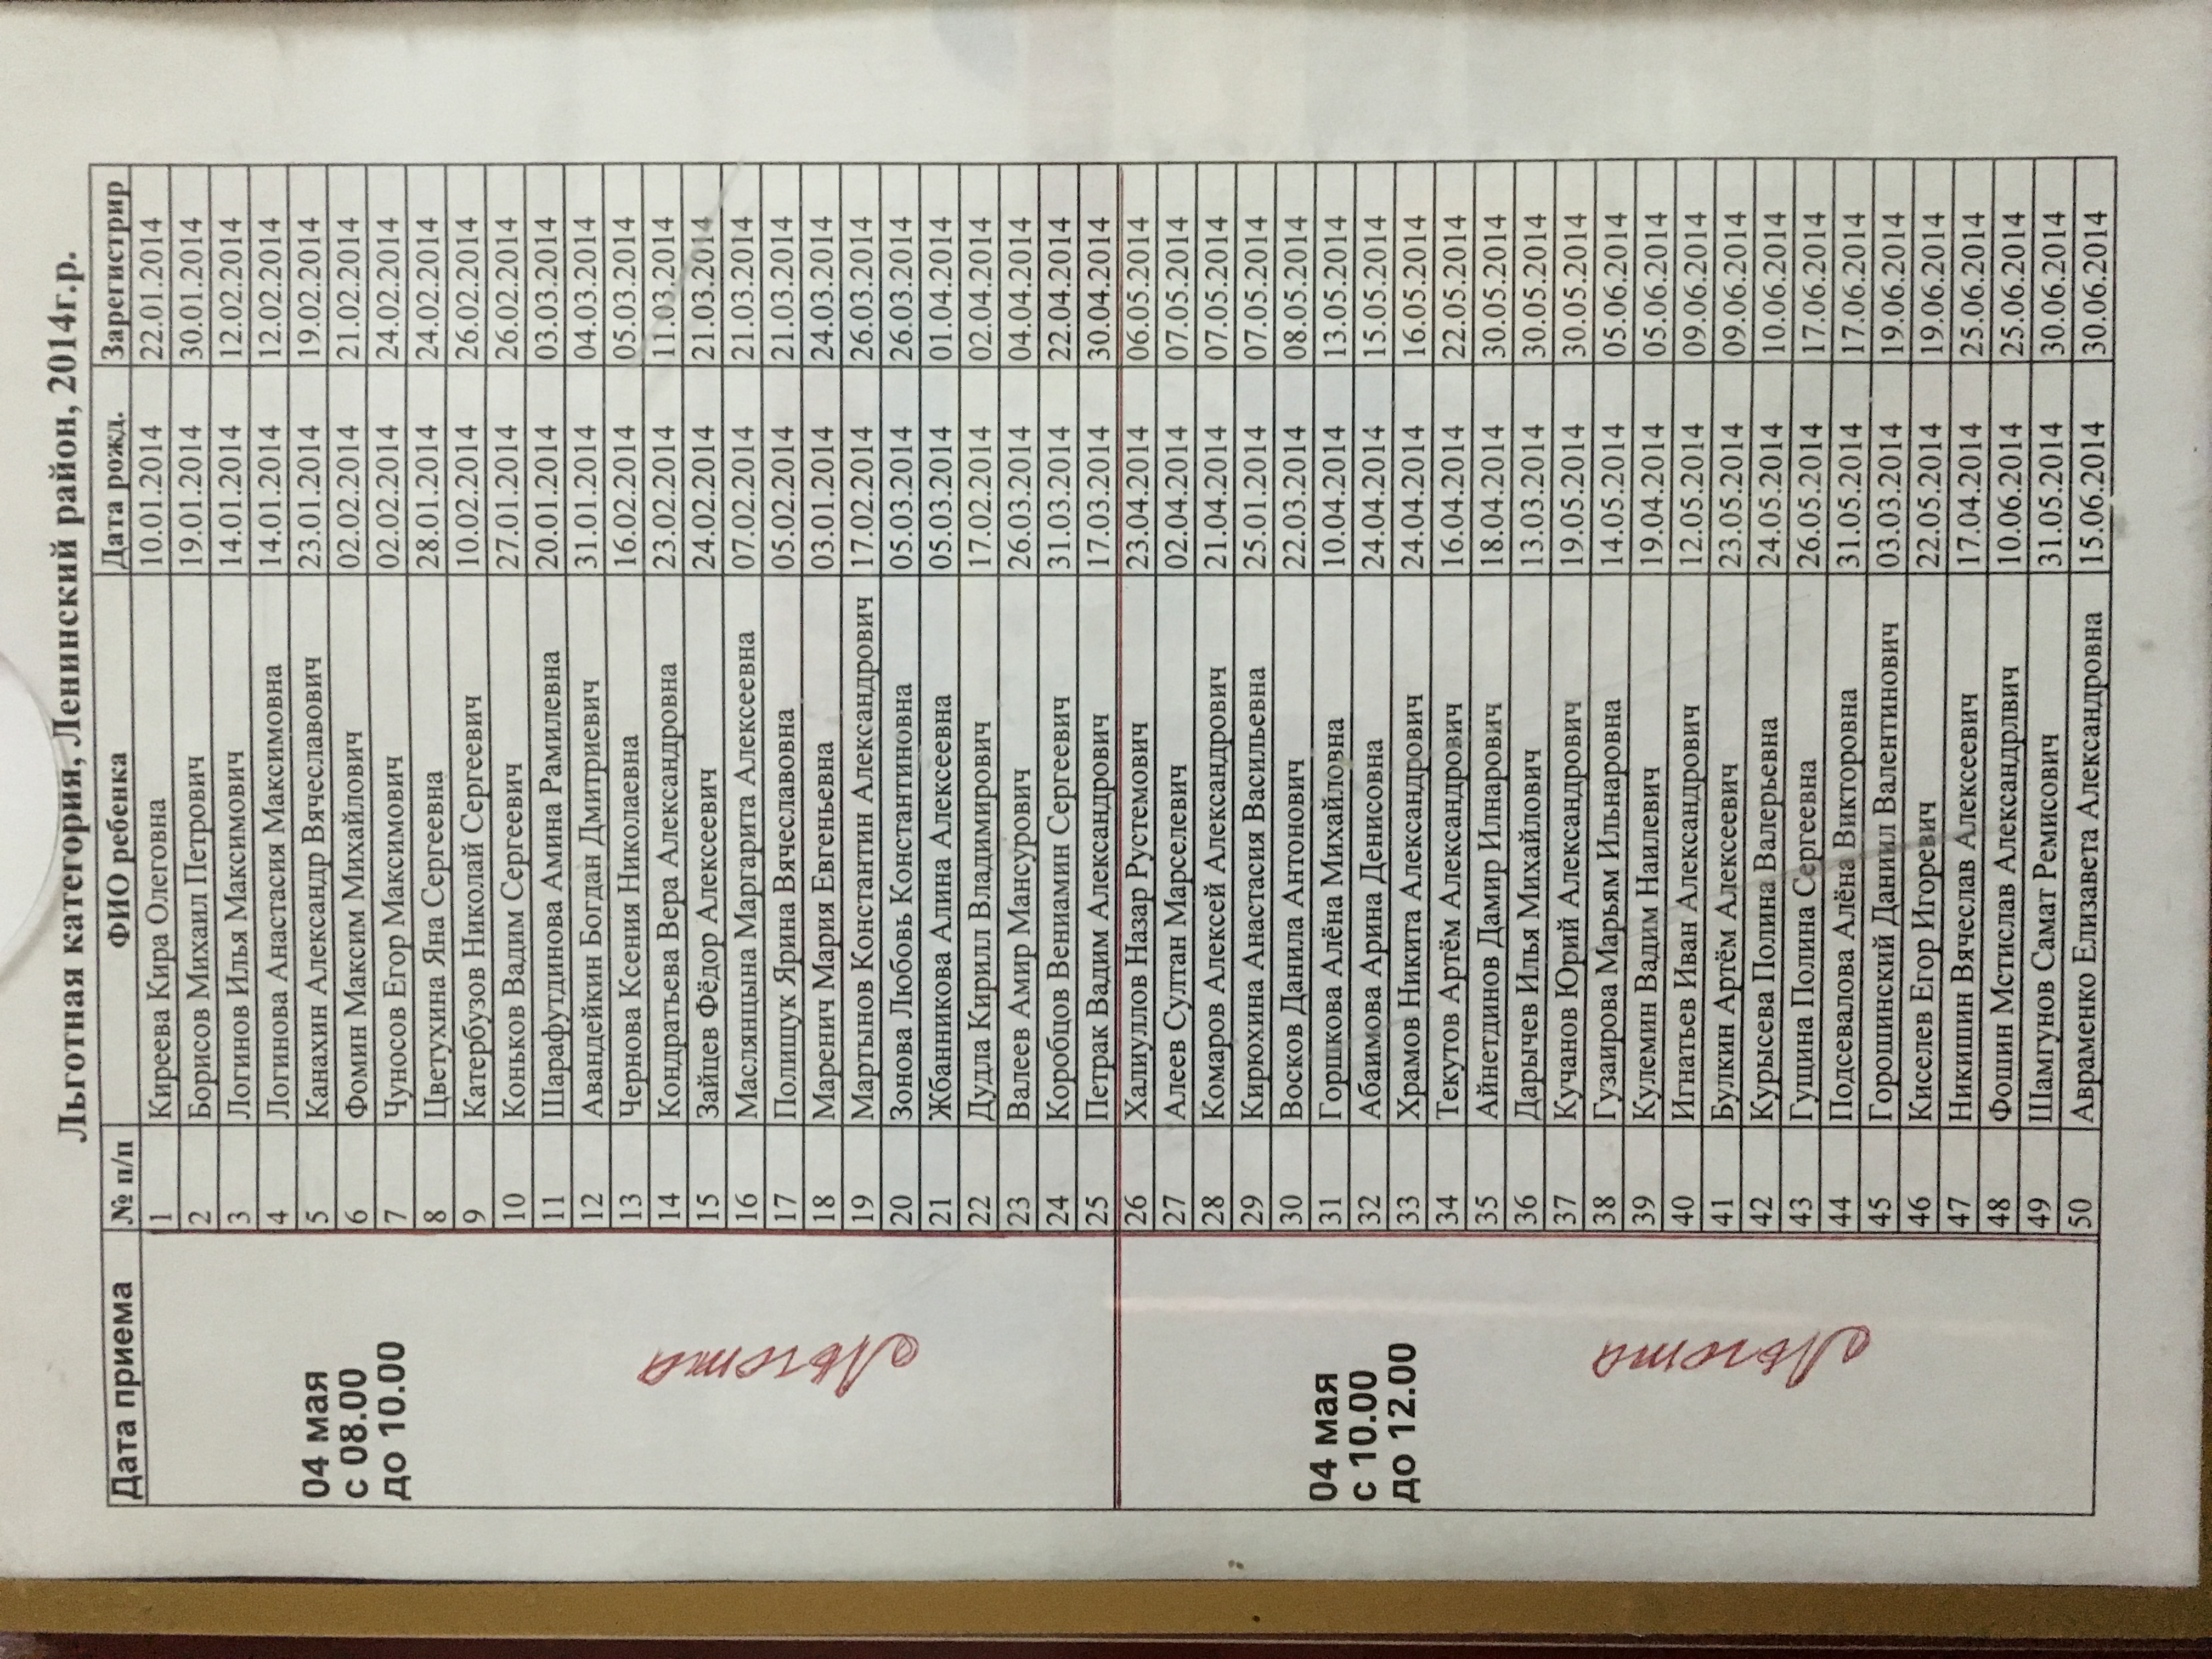 Льготная категория, Ленинский район, 2014г.р.
Дата приема № п/п ФИО ребенка Дата рожд. Зарегистрир
04 мая
с 08.00
до 10.00
Льгота
1 Киреева Кира Олеговна 10.01.2014 22.01.2014
2 Борисов Михаил Петрович 19.01.2014 30.01.2014
3 Логинов Илья Максимович 14.01.2014 12.02.2014
4 Логинова Анастасия Максимовна 14.01.2014 12.02.2014
5 Канахин Александр Вячеславович 23.01.2014 19.02.2014
6 Фомин Максим Михайлович 02.02.2014 21.02.2014
7 Чуносов Егор Максимович 02.02.2014 24.02.2014
8 Цветухина Яна Сергеевна 28.01.2014 24.02.2014
9 Катербузов Николай Сергеевич 10.02.2014 26.02.2014
10 Коньков Вадим Сергеевич 27.01.2014 26.02.2014
11 Шарафутдинова Амина Рамилевна 20.01.2014 03.03.2014
12 Авандейкин Богдан Дмитриевич 31.01.2014 04.03.2014
13 Чернова Ксения Николаевна 16.02.2014 05.03.2014
14 Кондратьева Вера Александровна 23.02.2014 11.03.2014
15 Зайцев Фёдор Алексеевич 24.02.2014 21.03.2014
16 Маслянцына Маргарита Алексеевна 07.02.2014 21.03.2014
17 Полищук Ярина Вячеславовна 05.02.2014 21.03.2014
18 Маренич Мария Евгеньевна 03.01.2014 24.03.2014
19 Мартынов Константин Александрович 17.02.2014 26.03.2014
20 Зонова Любовь Константиновна 05.03.2014 26.03.2014
21 Жбанникова Алина Алексеевна 05.03.2014 01.04.2014
22 Дудла Кирилл Владимирович 17.02.2014 02.04.2014
23 Валеев Амир Мансурович 26.03.2014 04.04.2014
24 Коробцов Вениамин Сергеевич 31.03.2014 22.04.2014
25 Петрак Вадим Александрович 17.03.2014 30.04.2014
04 мая
с 10.00
до 12.00
Льгота
26 Халиуллов Назар Рустемович 23.04.2014 06.05.2014
27 Алеев Султан Марселевич 02.04.2014 07.05.2014
28 Комаров Алексей Александрович 21.04.2014 07.05.2014
29 Кирюхина Анастасия Васильевна 25.01.2014 07.05.2014
30 Восков Данила Антонович 22.03.2014 08.05.2014
31 Горшкова Алёна Михайловна 10.04.2014 13.05.2014
32 Абаимова Арина Денисовна 24.04.2014 15.05.2014
33 Храмов Никита Александрович 24.04.2014 16.05.2014
34 Текутов Артём Александрович 16.04.2014 22.05.2014
35 Айнетдинов Дамир Илнарович 18.04.2014 30.05.2014
36 Дарычев Илья Михайлович 13.03.2014 30.05.2014
37 Кучанов Юрий Александрович 19.05.2014 30.05.2014
38 Гузаирова Марьям Ильнаровна 14.05.2014 05.06.2014
39 Кулемин Вадим Наилевич 19.04.2014 05.06.2014
40 Игнатьев Иван Александрович 12.05.2014 09.06.2014
41 Булкин Артём Алексеевич 23.05.2014 09.06.2014
42 Курысева Полина Валерьевна 24.05.2014 10.06.2014
43 Гущина Полина Сергеевна 26.05.2014 17.06.2014
44 Подсевалова Алёна Викторовна 31.05.2014 17.06.2014
45 Горошинский Даниил Валентинович 03.03.2014 19.06.2014
46 Киселев Егор Игоревич 22.05.2014 19.06.2014
47 Никишин Вячеслав Алексеевич 17.04.2014 25.06.2014
48 Фошин Мстислав Александрлвич 10.06.2014 25.06.2014
49 Шамгунов Самат Ремисович 31.05.2014 30.06.2014
50 Авраменко Елизавета Александровна 15.06.2014 30.06.2014